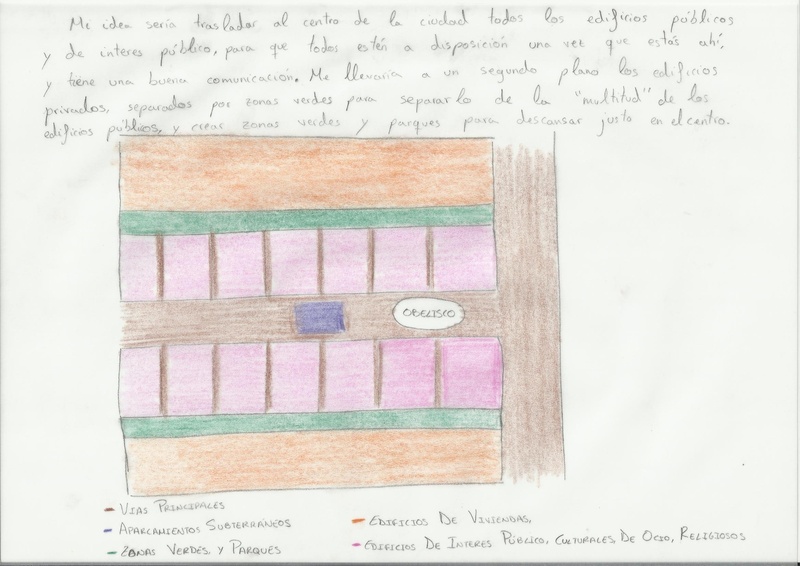 Mi idea sería trasladar al centro de la ciudad todos los edificios públicos
y de interes público, para que todos estén a disposición una vez que estás ahí,
y tiene una buena comunicación. Me llevaría a un segundo plano los edificios
privados, separados por zonas verdes para separarlo de la "multitud" de los
edificios públicos, y crear zonas verdes y parques para descansar justo en el centro.
OBELISCO
- VIAS PRINCIPALES
- APARCAMIENTOS SUBTERRÁNEOS
- ZONAS VERDES, Y PARQUES
- EDIFICIOS DE VIVIENDAS,
- EDIFICIOS DE INTERES PÚBLICO, CULTURALES, DE OCIO, RELIGIOSOS